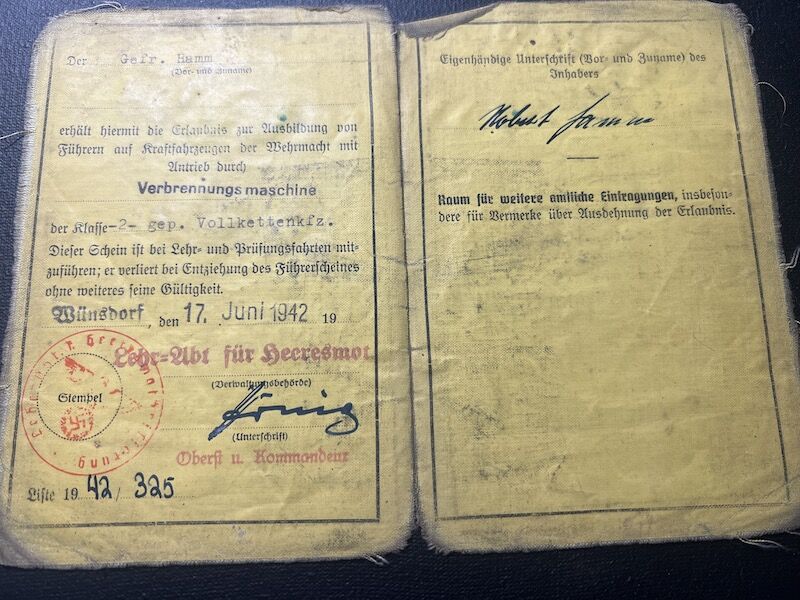 Der Gefr. Hamm
(Vor- und Zuname)
erhält hiermit die Erlaubnis zur Ausbildung von
Führern auf Kraftfahrzeugen der Wehrmacht mit
Antrieb durch
Verbrennungsmaschine
der Klasse -2- gep. Vollkettenkfz.
Dieser Schein ist bei Lehr- und Prüfungsfahrten mit-
zuführen; er verliert bei Entziehung des Führerscheines
ohne weiteres seine Gültigkeit.
Wünsdorf, den 17. Juni 1942 19
Lehr-Abt für Heeresmot
(Verwaltungsbehörde)
Stempel
(Unterschrift)
Oberst u. Kommandeur
Liste 19 42/ 325
Eigenhändige Unterschrift (Vor- und Zuname) des
Inhabers
Robert Hamm
Raum für weitere amtliche Eintragungen, insbeson-
dere für Vermerke über Ausdehnung der Erlaubnis.